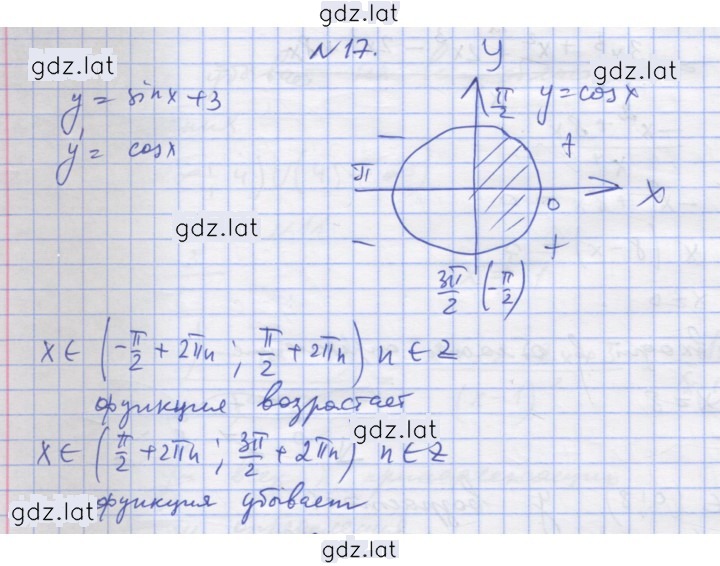 gdz.lat
N 17.
gdz.lat
gdz.lat
y = sinx + 3
y' = cosx
y
π/2
y = cosx
−
+
π
0
x
gdz.lat
−
+
3π/2 (-π/2)
x ∈ (-π/2 + 2πn ; π/2 + 2πn) n ∈ Z
функция возрастает
gdz.lat
x ∈ (π/2 + 2πn ; 3π/2 + 2πn) n ∈ Z
gdz.lat
функция убывает
gdz.lat